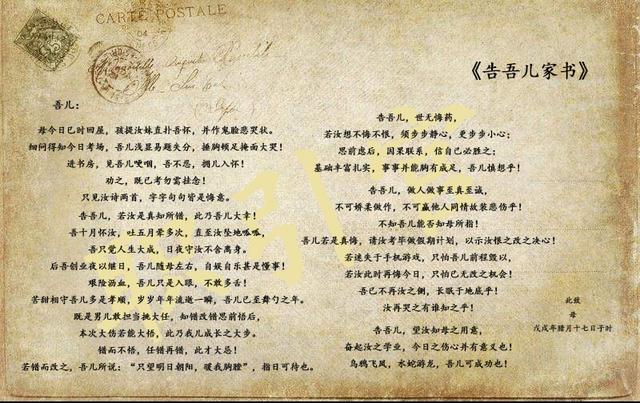 CARTE POSTALE
《告吾儿家书》
吾儿：
母今日巳时回屋，孩提汝妹直扑吾怀，并作鬼脸悲哭状。
细问得知今日考场，吾儿浅显易题失分，捶胸顿足掩面大哭！
进书房，见吾儿哽咽，吾不忍，拥儿入怀！
劝之，既已考勿需挂念！
只见汝诗两首，字字句句皆是悔意。
告吾儿，若汝是真知所错，此乃吾儿大幸！
吾十月怀汝，吐五月晕多次，直至汝坠地呱呱，
吾只觉人生大成，日夜守汝不舍离身。
后吾创业夜以继日，吾儿随母左右，自娱自乐甚是懂事！
艰险沥血，吾儿只是入眼，不敢多舌！
若甜相守吾儿多是孝顺，岁岁年年流逝一瞬，吾儿已至舞勺之年。
既是男儿敢担当挑大任，知错改错思前悟后，
本次大伤若能大悟，此乃我儿成长之大步。
错而不悟，任错再错，此才大忌！
若错而改之，吾儿所说：“只望明日朝阳，暖我胸膛”，指日可待也。
告吾儿，世无悔药，
若汝想不悔不恨，须步步静心，更步步小心；
思前虑后，因果联系，信自己必胜之；
基础丰富扎实，事事并能胸有成足，吾儿慎想乎！
告吾儿，做人做事至真至诚，
不可娇柔做作，不可赢他人同情故装悲伤乎！
不知吾儿能否知母所指！
吾儿若是真悔，请汝考毕做假期计划，以示汝恨之改之决心！
若迷失于手机游戏，只怕吾儿前程毁以，
若汝此时再悔今日，只怕已无改之机会！
吾已不再汝之侧，长眠于地底乎！
汝再哭之有谁知之乎！
告吾儿，望汝知母之用意，
奋起汝之学业，今日之伤心并有意义也！
乌鸦飞凤，水蛇游龙，吾儿可成功也！
此致
母
戊戌年腊月十七日子时